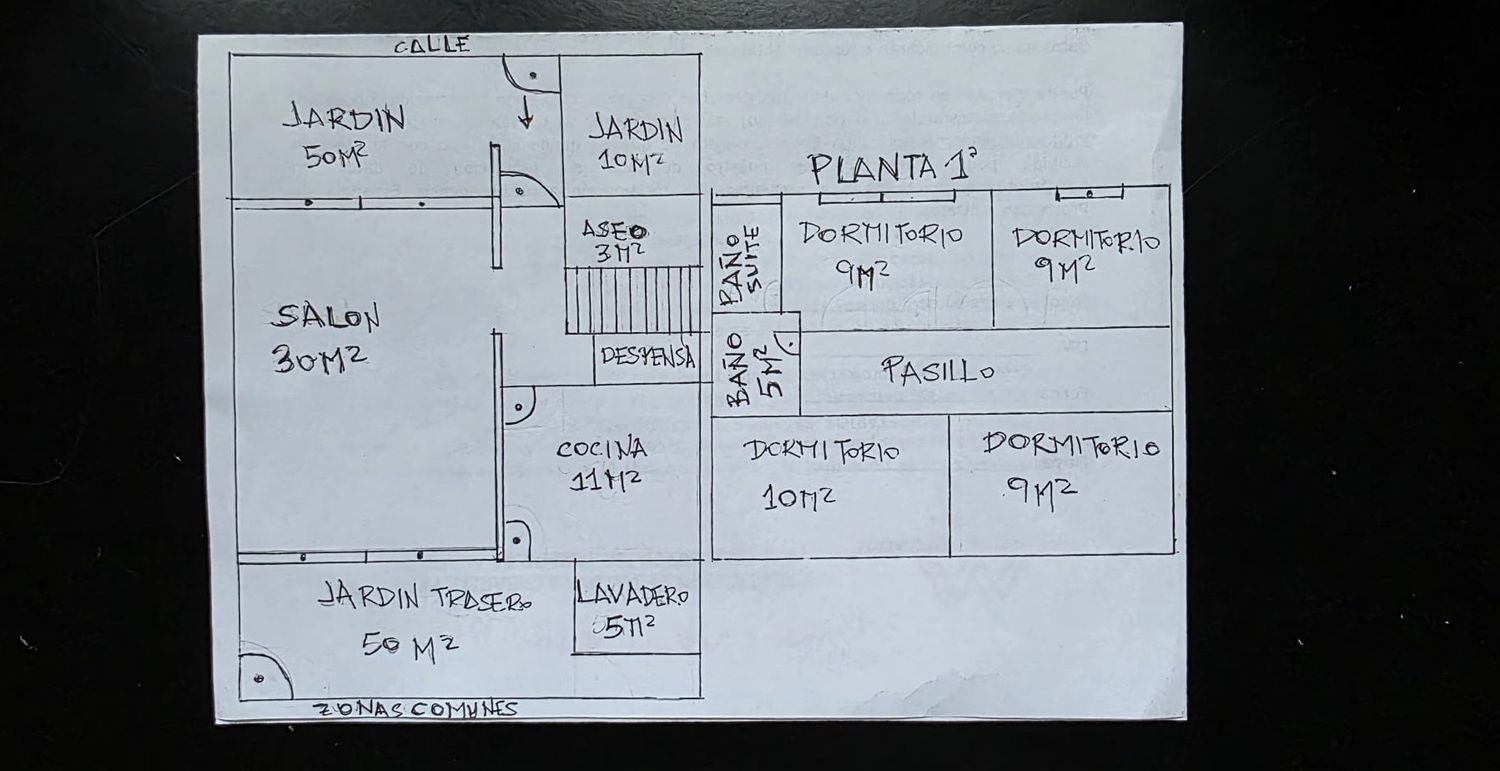 CALLE
JARDIN
50M²
JARDIN
10M²
ASEO
3M²
SALON
30M²
DESPENSA
COCINA
11M²
JARDIN TRASERO
50 M²
LAVADERO
5M²
ZONAS COMUNES
PLANTA 1ª
BAÑO
SUITE
DORMITORIO
9M²
DORMITORIO
9M²
BAÑO
5M²
PASILLO
DORMITORIO
10M²
DORMITORIO
9M²